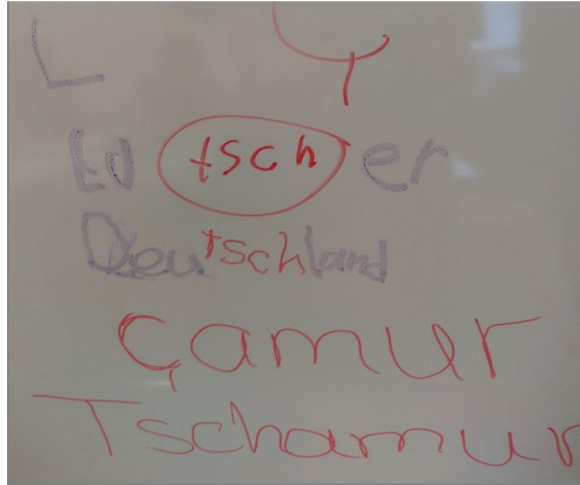 L Ç
Ldtscher
Deutschland
Çamur
Tschamur